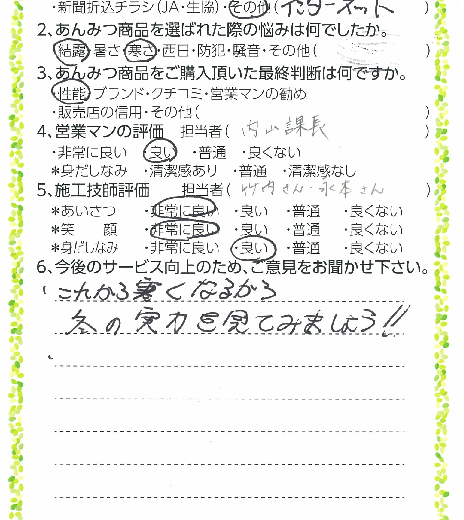 ・新聞折込チラシ(JA・生協)・その他(インターネット)
2、あんみつ商品を選ばれた際の悩みは何でしたか。
・結露・暑さ・寒さ・西日・防犯・騒音・その他( )
3、あんみつ商品をご購入頂いた最終判断は何ですか。
・性能・ブランド・クチコミ・営業マンの勧め
・販売店の信用・その他( )
4、営業マンの評価 担当者( 内山課長 )
・非常に良い ・良い ・普通 ・良くない
*身だしなみ ・清潔感あり ・普通 ・清潔感なし
5、施工技師評価 担当者( 竹内さん・永本さん )
*あいさつ ・非常に良い ・良い ・普通 ・良くない
*笑 顔 ・非常に良い ・良い ・普通 ・良くない
*身だしなみ ・非常に良い ・良い ・普通 ・良くない
6、今後のサービス向上のため、ご意見をお聞かせ下さい。
これから寒くなるから
冬の実力を見てみましょう!!